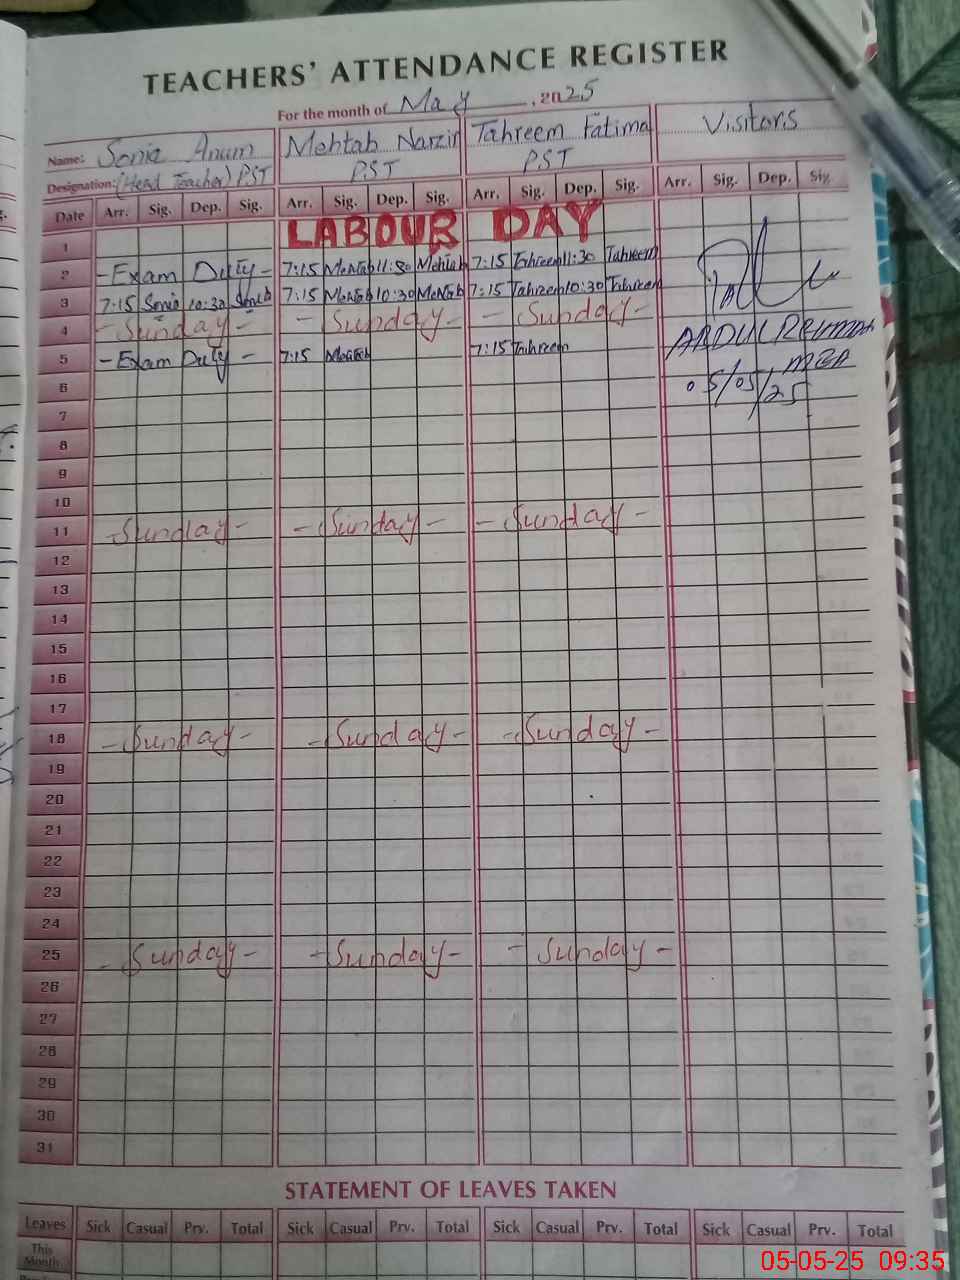 TEACHERS' ATTENDANCE REGISTER
For the month of May, 2025
Name: Sonia Anam Mehtab Narzir Tahreem Fatima Visitors
Designation: (Head Teacher) PST PST PST
Date Arr. Sig. Dep. Sig. Arr. Sig. Dep. Sig. Arr. Sig. Dep. Sig. Arr. Sig. Dep. Sig.
1 LABOUR DAY
2 -Exam Duty- 7:15 Mehtab 11:30 Mehtab 7:15 Tahreem 11:30 Tahreem
3 7:15 Sonia 10:30 Sonia 7:15 Mehtab 10:30 Mehtab 7:15 Tahreem 10:30 Tahreem
4 -Sunday- -Sunday- -Sunday-
ABDUL Rehman
5 -Exam Duty- 7:15 Mehtab 7:15 Tahreem
MEA
6
05/05/25
7
8
9
10
11 -Sunday- -Sunday- -Sunday-
12
13
14
15
16
17
18 -Sunday- -Sunday- -Sunday-
19
20
21
22
23
24
25 -Sunday- -Sunday- -Sunday-
26
27
28
29
30
31
STATEMENT OF LEAVES TAKEN
Leaves Sick Casual Prv. Total Sick Casual Prv. Total Sick Casual Prv. Total Sick Casual Prv. Total
This
Month
05-05-25 09:35